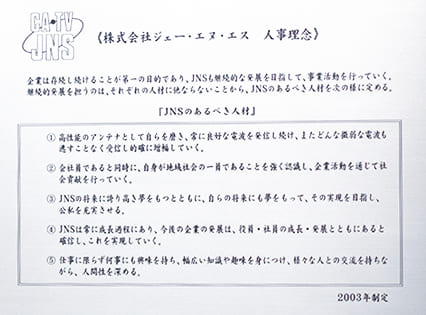 CA・TV
JNS
《株式会社ジェー・エヌ・エス　人事理念》
企業は存続し続けることが第一の目的であり、JNSも継続的な発展を目指して、事業活動を行っていく。
継続的発展を担うのは、それぞれの人材に他ならないことから、JNSのあるべき人材を次の様に定める。
『JNSのあるべき人材』
① 高性能のアンテナとして自らを磨き、常に良好な電波を発信し続け、またどんな微弱な電波も
逃すことなく受信し的確に増幅していく。
② 会社員であると同時に、自身が地域社会の一員であることを強く認識し、企業活動を通じて社
会貢献を行っていく。
③ JNSの将来に誇り高き夢をもつとともに、自らの将来にも夢をもって、その実現を目指し、
公私を充実させる。
④ JNSは常に成長過程にあり、今後の企業の発展は、役員・社員の成長・発展とともにあると
確信し、これを実現していく。
⑤ 仕事に限らず何事にも興味を持ち、幅広い知識や趣味を身につけ、様々な人との交流を持ちな
がら、人間性を深める。
2003年制定